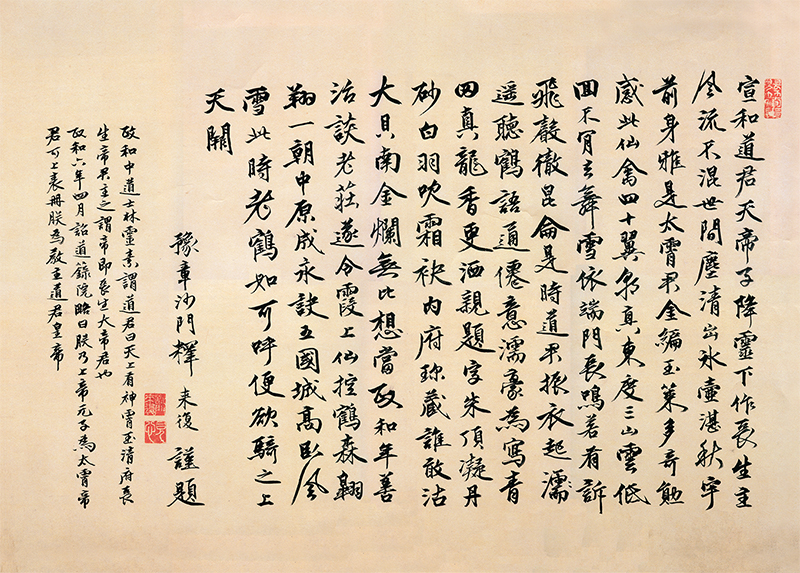 宣和道君天帝子降靈下作長生主
風流不混世間塵清出冰壺湛秋宇
前身雅是太霄君金編玉策多奇勉
感此仙禽四十翼朝真東度三山雲低
回不肎去舞雪依端門長鳴若有訴
飛聲徹昆侖是時道君振衣起濡
遥聽鶴語通僊意濡豪為寫青
田真龍香更洒親題字朱頂凝丹
砂白羽吹霜袂内府珎藏誰敢沽
大貝南金爛無比想當政和年善
治談老莊遂令霞上仙控鶴森翱
翔一朝中原成永訣五國城高卧風
雪此時老鶴如可呼便欲騎之上
天闕
豫章沙門釋 来復 謹題
政和中道士林靈素謂道君曰天上有神霄玉清府長
生帝君主之謂帝即長生大帝君也
政和六年四月詔道籙院略曰朕乃上帝元子為太霄帝
君可上表冊朕為教主道君皇帝